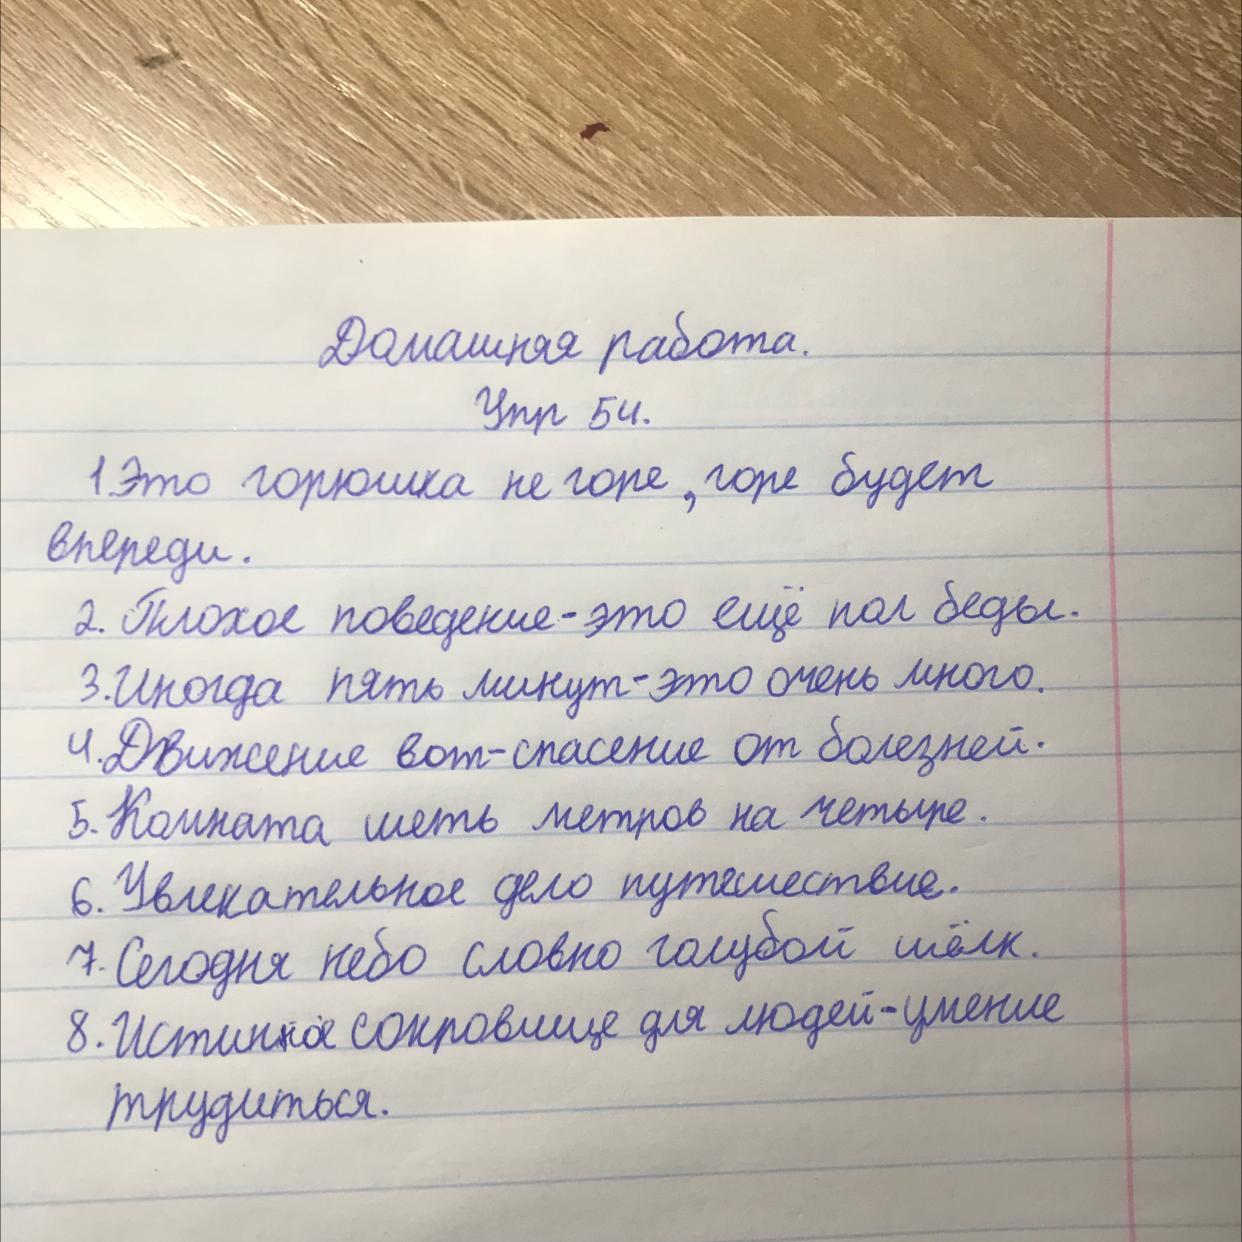 Домашняя работа.
Упр 54.
1 Это горюшка не горе, горе будет
впереди.
2. Плохое поведение-это ещё пол беды.
3. Иногда пять минут-это очень много.
4. Движение вот-спасение от болезней.
5. Комната шеть метров на четыре.
6. Увлекательное дело путешествие.
7. Сегодня небо словно голубой шёлк.
8. Истинное сокровище для людей-умение
трудиться.